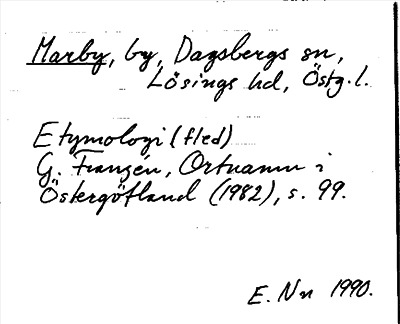 Marby, by, Dagsbergs sn,
Lösings hd, Östg.l.
Etymologi (fled)
G. Franzén, Ortnamn i
Östergötland (1982), s. 99.
E. Nn 1990.